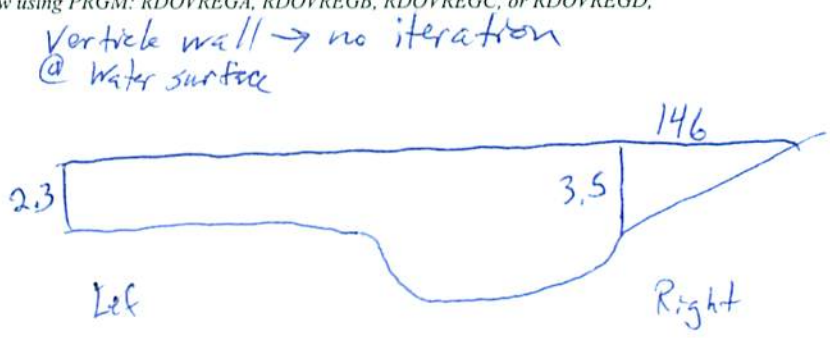 w using PRGM: RDOVREGA, RDOVREGB, RDOVREGC, or RDOVREGD,
Verticle wall → no iteration
@ Water surface
146
2.3
3.5
Lef
Right